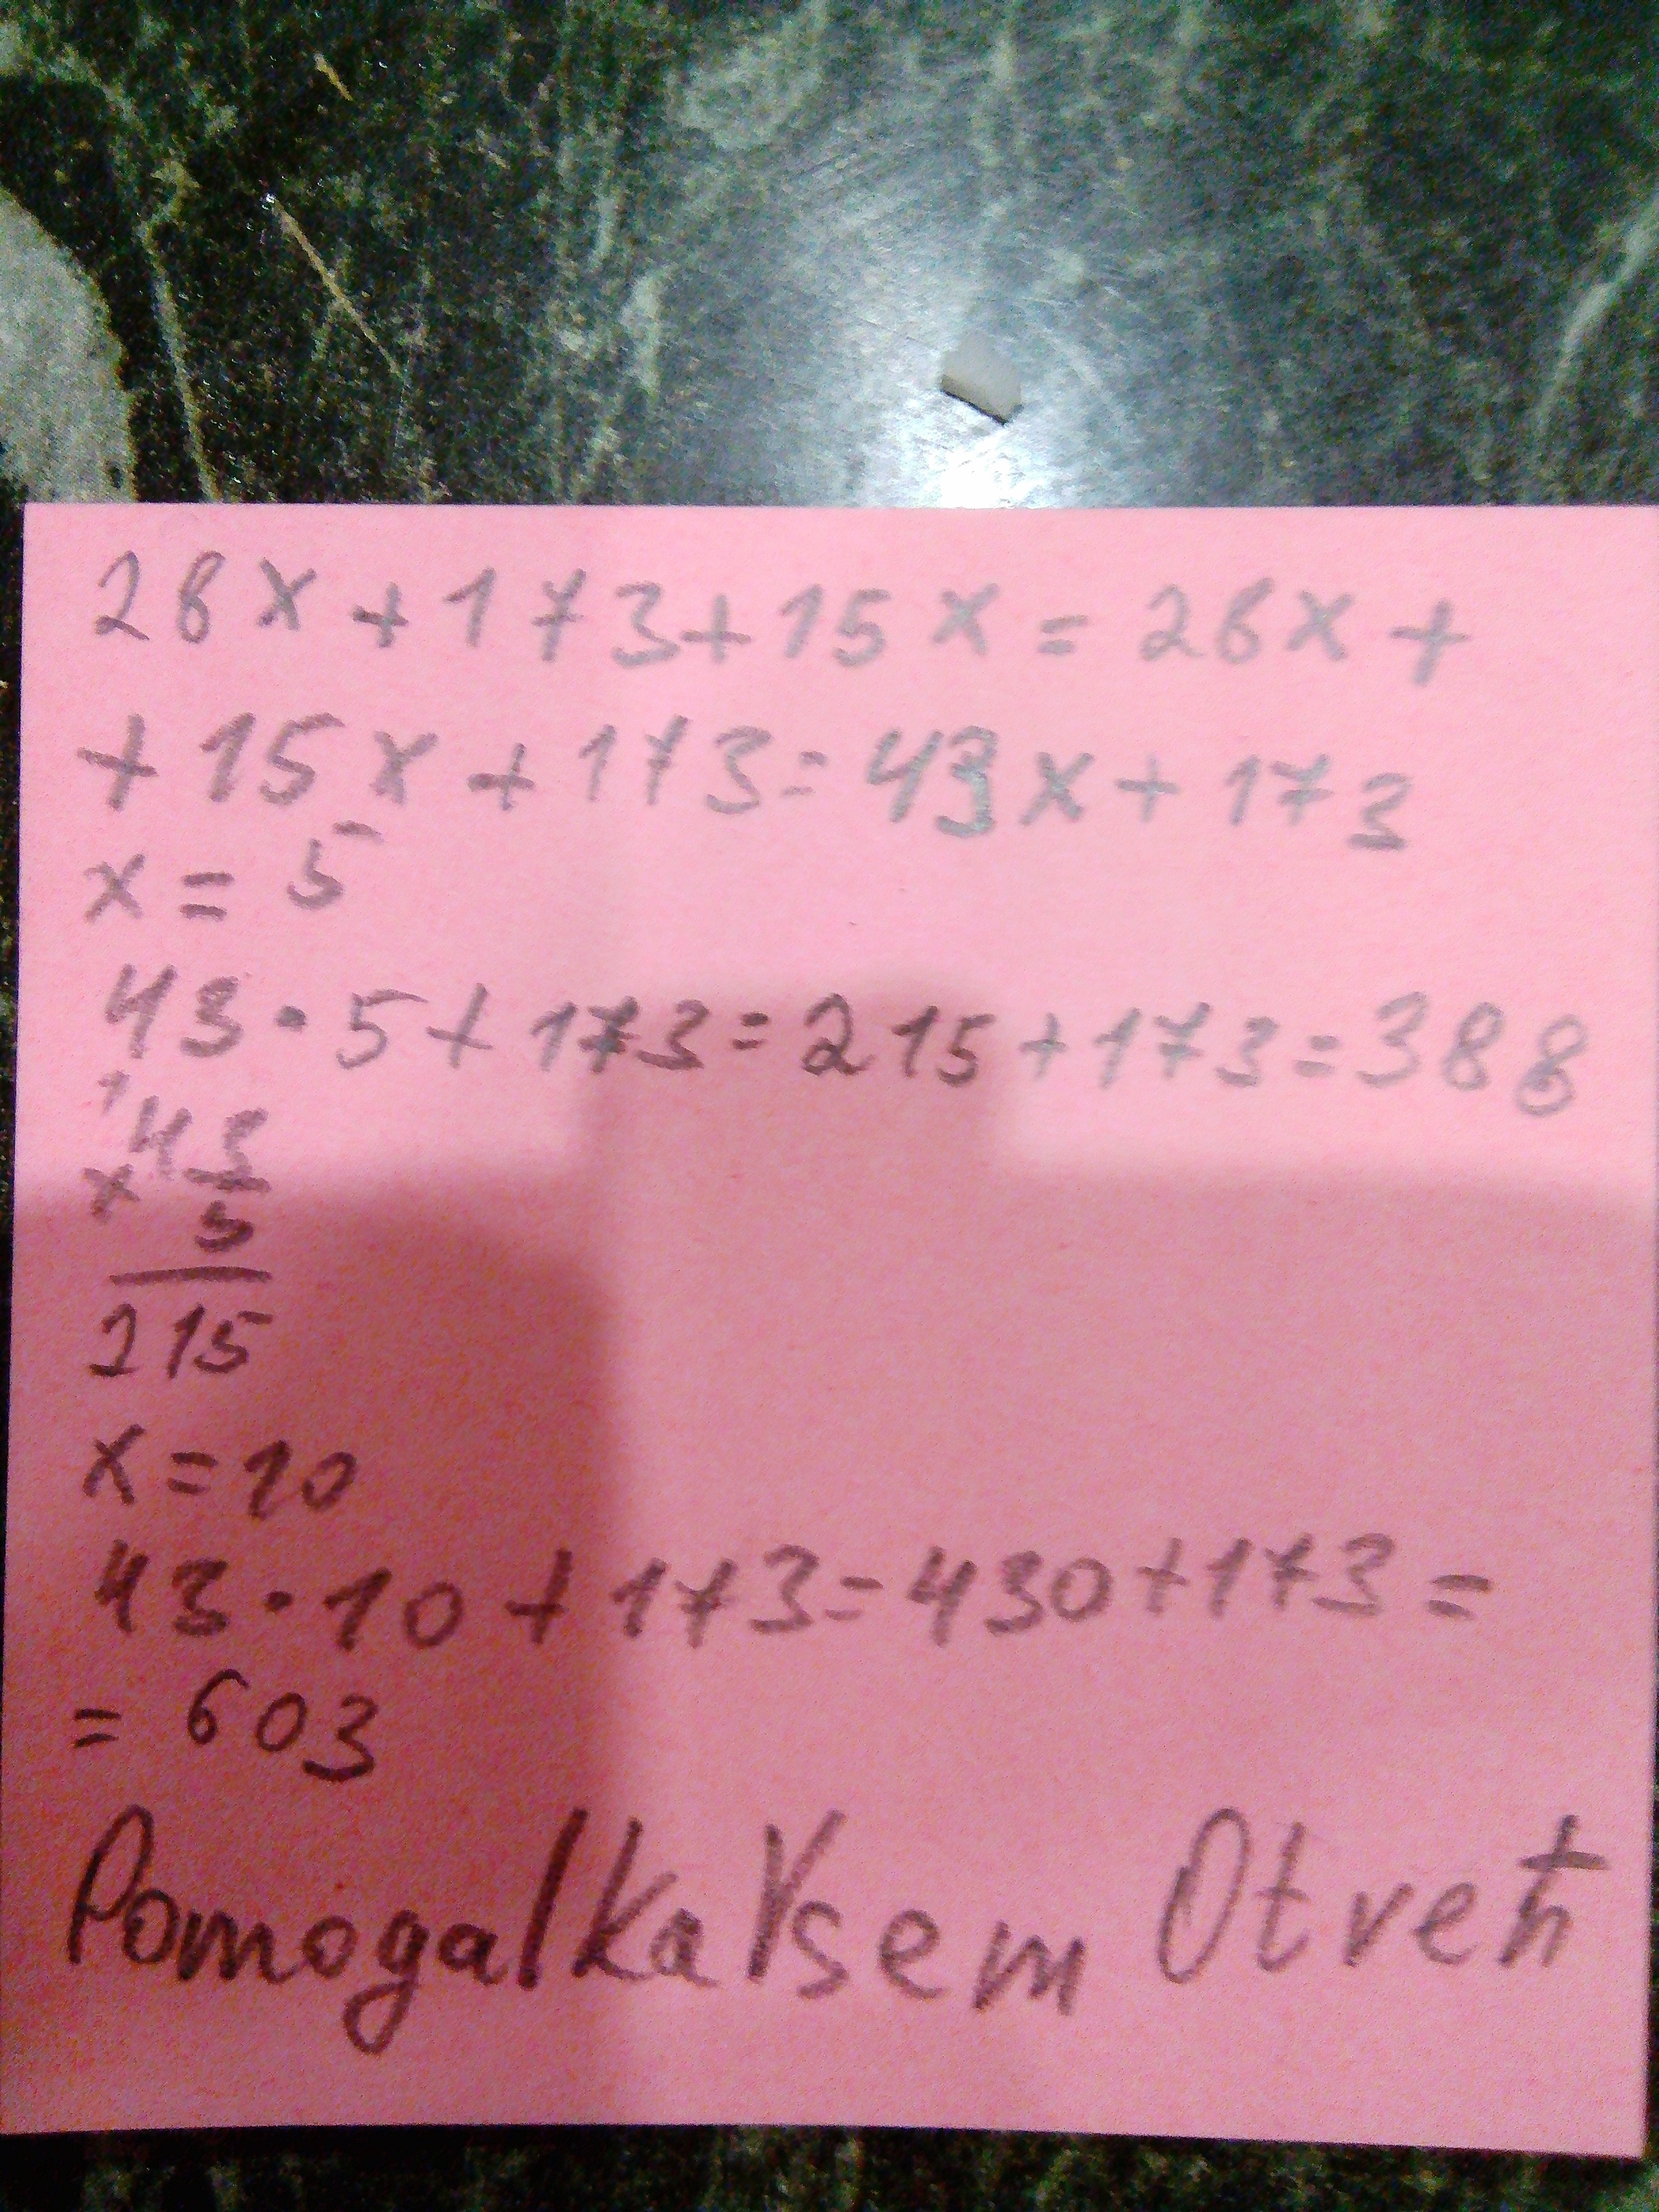 28x+173+15x=28x+
+15x+173=43x+173
x=5
43·5+173=215+173=388
1
43
x
5
215
x=10
43·10+173=430+173=
=603
PomogalkaVsem Otvet